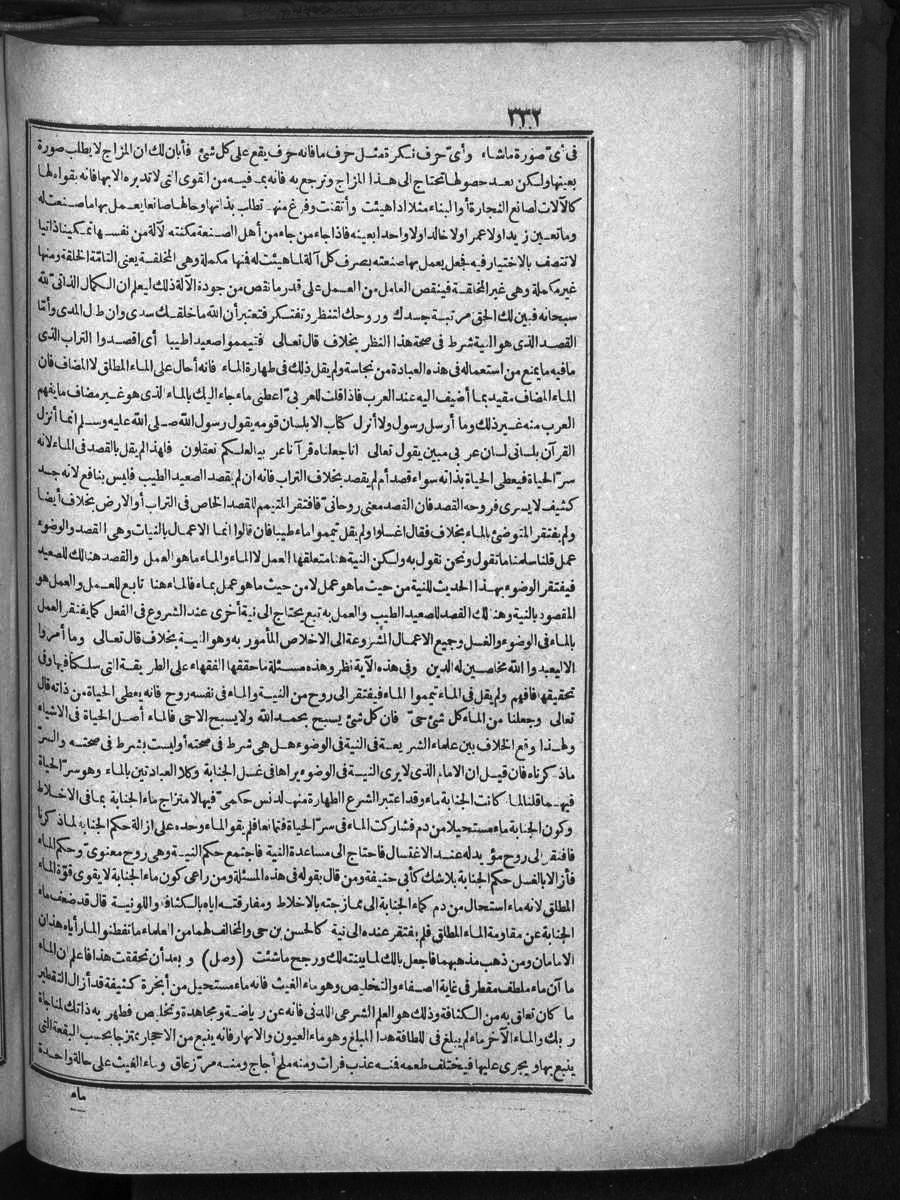 ٣٣٢
فى أىّ صورة ماشاء وأىّ حرف نكرة مثل حرف ما فانه حرف يقع على كل شئ فأبان لك ان المزاج لا يطلب صورة
بعينها ولكن بعد حصولها تحتاج الى هذا المزاج وترجع به فانه بما فيه من القوى التى لا تدبره الا بها فانه بقواه لها
كالآلات لصانع النجارة أو البناء مثلا اذا هيئت وأتقنت وفرغ منها تطلب بذاتها وحالها صانعا يعمل بها ما صنعت له
وما تعين زيدا ولا عمرا ولا خالدا ولا واحدا بعينه فاذا جاء من جاء من أهل الصنعة مكنته الآلة من نفسها تمكينا ذاتيا
لا تتصف بالاختيار فيه فجعل يعمل بها صنعته بصرف كل آلة لما هيئت له فمنها مكملة وهى المخلقة يعنى التامّة الخلقة ومنها
غير مكملة وهى غير المخلقة فينقص العامل من العمل على قدر ما نقص من جودة الآلة ذلك ليعلم ان الكمال الذاتىّ لله
سبحانه فبين لك الحق مرتبة جسدك وروحك لتنظر وتفتكر فتعتبر أن الله ما خلقك سدى وان طال المدى وأمّا
القصد الذى هو النية شرط فى صحة هذا النظر بخلاف قال تعالى فتيمموا صعيدا طيبا أى اقصدوا التراب الذى
ما فيه ما يمنع من استعماله فى هذه العبادة من نجاسة ولم يقل ذلك فى طهارة الماء فانه أحال على الماء المطلق لا المضاف فان
الماء المضاف مقيد بما أضيف اليه عند العرب فاذا قلت للعربىّ اعطنى ماء جاء اليك بالماء الذى هو غير مضاف ما يفهم
العرب منه غير ذلك وما أرسل رسول ولا أنزل كتاب الا بلسان قومه يقول رسول الله صلى الله عليه وسلم انما أنزل
القرآن بلسانى لسان عربى مبين يقول تعالى انا جعلناه قرآنا عربيا لعلكم تعقلون فلهذا لم يقل بالقصد فى الماء لانه
سرّ الحياة فيعطى الحياة بذاته سواء قصد أم لم يقصد بخلاف التراب فانه ان لم يقصد الصعيد الطيب فليس بنافع لانه جسد
كثيف لا يسرى فروحه القصد فان القصد معنى روحانىّ فافتقر المتيمم للقصد الخاص فى التراب أو الارض بخلاف أيضا
ولم يفتقر المتوضئ بالماء بخلاف فقال اغسلوا ولم يقل تيمموا ماء طيبا فان قالوا انما الاعمال بالنيات وهى القصد والوضوء
عمل قلنا سلمنا ما تقول ونحن نقول به ولكن النية هنا متعلقها العمل لا الماء والماء ما هو العمل والقصد هنالك للصعيد
فيفتقر الوضوء بهذا الحديث للنية من حيث ما هو عمل لا من حيث ما هو عمل بماء فالماء هنا تابع للعمل والعمل هو
المقصود بالنية وهنالك القصد للصعيد الطيب والعمل به تبع يحتاج الى نية أخرى عند الشروع فى الفعل كما يفتقر العمل
بالماء فى الوضوء والغسل وجميع الاعمال المشروعة الى الاخلاص المأمور به وهو النية بخلاف قال تعالى وما أمروا
الا ليعبدوا الله مخلصين له الدين وفى هذه الآية نظر وهذه مسئلة ما حققها الفقهاء على الطريقة التى سلكنا فيها وفى
تحقيقها فافهم ولم يقل فى الماء تيمموا الماء فيفتقر الى روح من النية والماء فى نفسه روح فانه يعطى الحياة من ذاته قال
تعالى وجعلنا من الماء كل شئ حىّ فان كل شئ يسبح بحمد الله ولا يسبح الا حى فالماء أصل الحياة فى الاشياء
ولهذا وقع الخلاف بين علماء الشريعة فى النية فى الوضوء هل هى شرط فى صحته أو ليست بشرط فى صحته والسرّ
ما ذكرناه فان قيل ان الامام الذى لا يرى النية فى الوضوء يراها فى غسل الجنابة وكلا العبادتين بالماء وهو سرّ الحياة
فيهما قلنا لما كانت الجنابة ماء وقد اعتبر الشرع الطهارة منها لدنس حكمىّ فيها لامتزاج ماء الجنابة بما فى الاخلاط
وكون الجنابة ماء مستحيلا من دم فشاركت الماء فى سرّ الحياة فتمانعا فلم يقو الماء وحده على ازالة حكم الجنابة لما ذكرنا
فافتقر الى روح مؤيد له عند الاغتسال فاحتاج الى مساعدة النية فاجتمع حكم النية وهى روح معنوىّ وحكم الماء
فأزالا بالغسل حكم الجنابة بلا شك كأبى حنيفة ومن قال بقوله فى هذه المسئلة ومن راعى كون ماء الجنابة لا يقوى قوّة الماء
المطلق لانه ماء استحال من دم كماء الجنابة الى ممازجته بالاخلاط ومفارقته اياه بالكثافة واللونية قال قد ضعف ماء
الجنابة عن مقاومة الماء المطلق فلم يفتقر عنده الى نية كالحسن بن حى والمخالف لهما من العلماء ما تفطنوا لما رأياه هذان
الامامان ومن ذهب مذهبهما فاجعل بالك لما بينته لك ورجح ماشئت (وصل) وبعد أن تحققت هذا فاعلم ان الماء
ما آن ماء ملطف مقطر فى غاية الصفاء والتخليص وهو ماء الغيث فانه ماء مستحيل من أبخرة كثيفة قد أزال التقطير
ما كان تعلق به من الكثافة وذلك هو العلم الشرعى اللدنى فانه عن رياضة ومجاهدة وتخليص فطهر به ذاتك لمناجاة
ربك والماء الآخر ماء لم يبلغ فى اللطافة هذا المبلغ وهو ماء العيون والانهار فانه ينبع من الاحجار يمتزجا بحسب البقعة التى
ينبع بها ويجرى عليها فيختلف طعمه فمنه عذب فرات ومنه ملح أجاج ومنه مرّ زعاق وماء الغيث على حالة واحدة
ماء